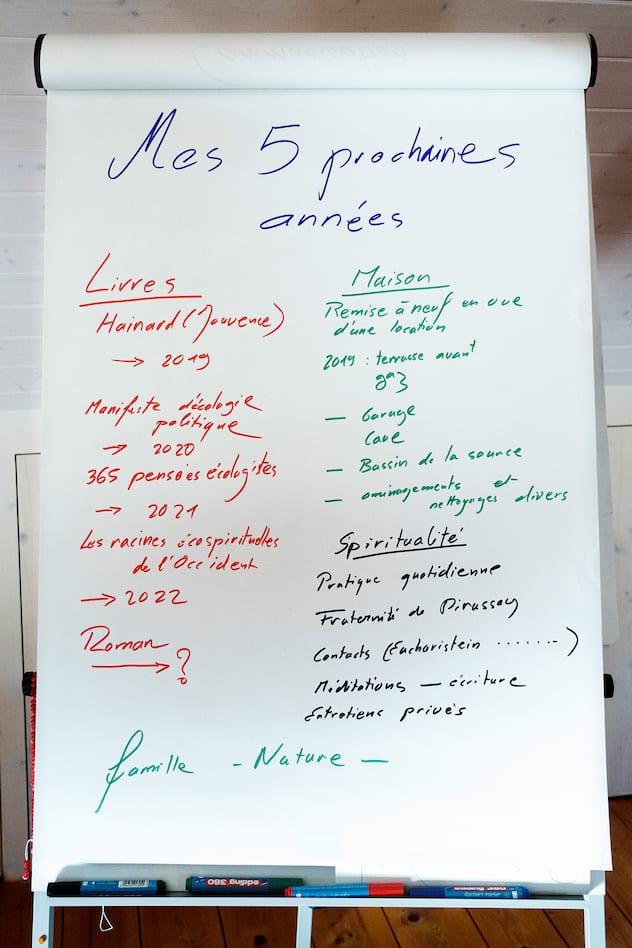 Mes 5 prochaines
années
Livres
Hainard (Jouvence)
→ 2019
Manifeste d'écologie
politique
→ 2020
365 pensées écologistes
→ 2021
Les racines écospirituelles
de l'Occident
→ 2022
Roman
→ ?
Maison
Remise à neuf en vue
d'une location
2019 : terrasse avant
gaz
— Garage
Cave
— Bassin de la source
— aménagements et
nettoyages divers
Spiritualité
Pratique quotidienne
Fraternité de
Contacts (Eucharistein .......)
Méditations — écriture
Entretiens privés
famille - Nature —
edding 380
edding 380